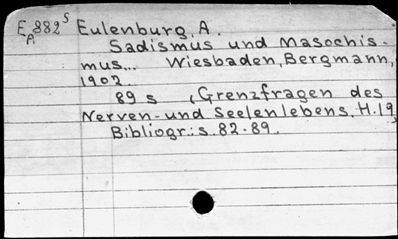 Ep882s Eulenburg, A.
Sadismus und Masochis-
mus... Wiesbaden, Bergmann,
1902.
89 s (Grenzfragen des
Nerven- und Seelenlebens, H.19)
Bibliogr.: s. 82-89.